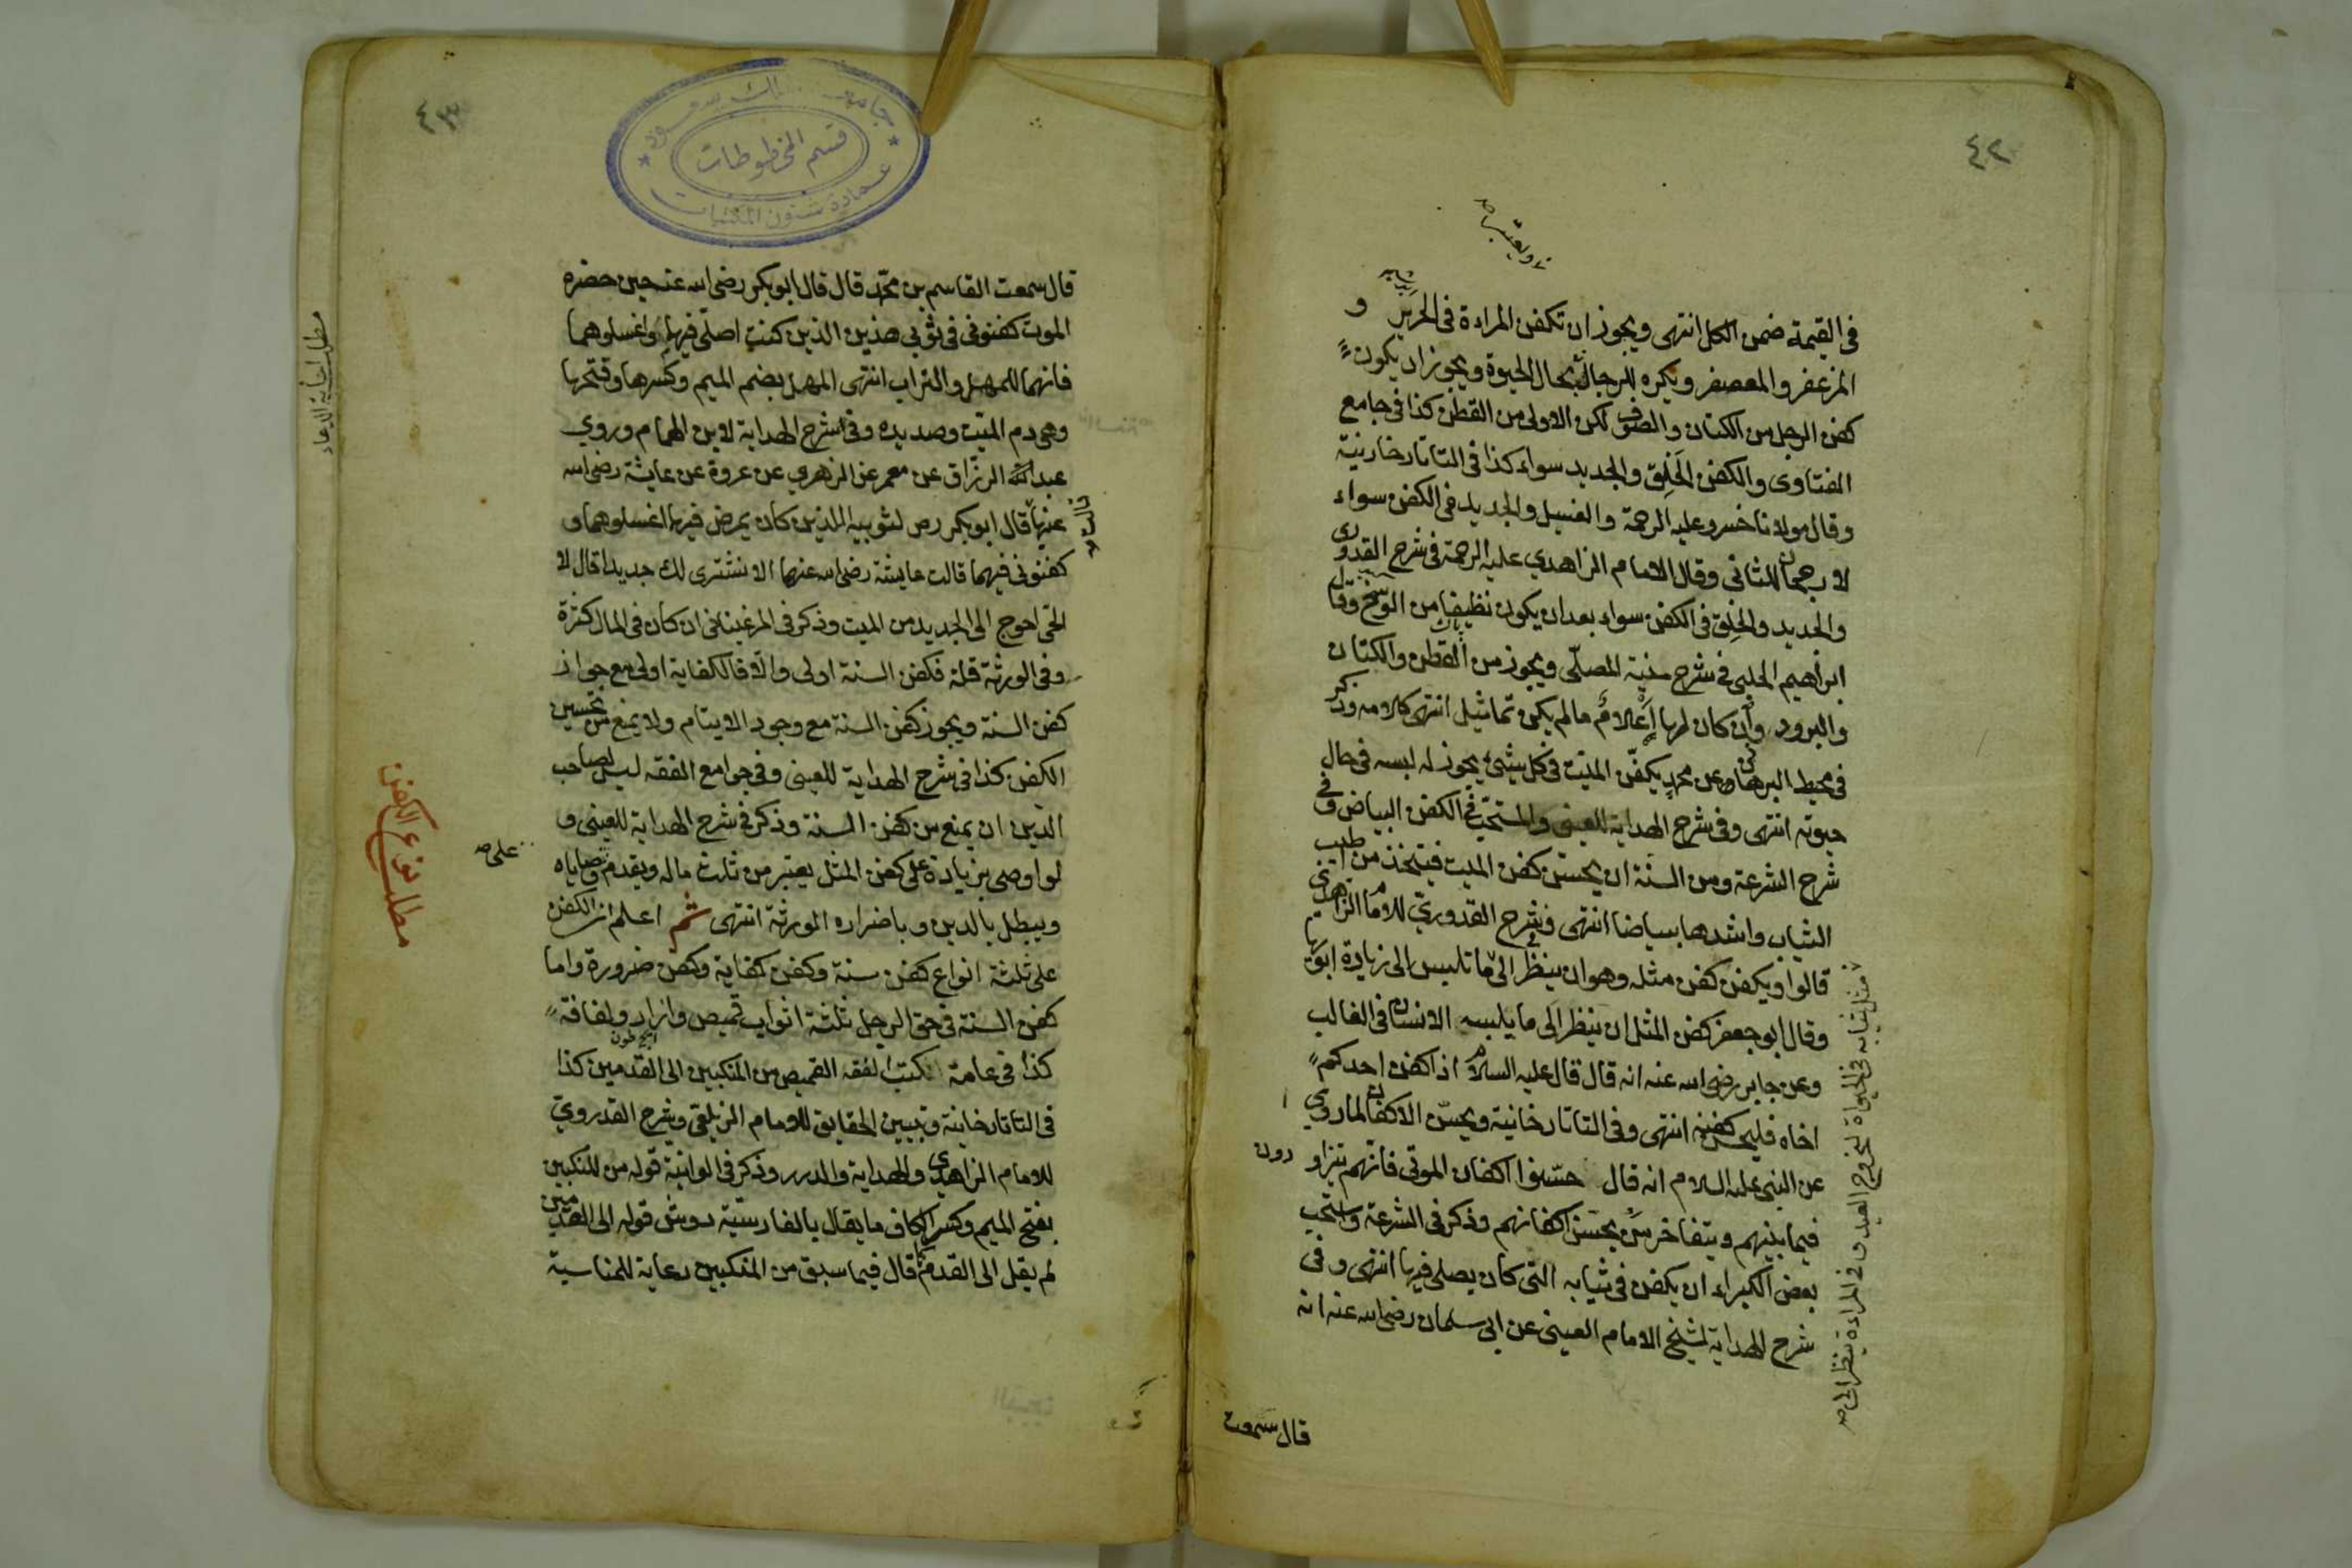 ٤٢
ويعتبر
في القيمة ضمن الكل انتهى ويجوز ان تكفن المراءة في الحرير و
المزعفر والمعصفر ويكره للرجال بحال الحيوة ويجوز ان يكون
كفن الرجل من الكتان والصوف لكن الاولى من القطن كذا في جامع
الفتاوى والكفن الخَلِق والجديد سواء كذا في التاتارخانية
وقال مولانا خسرو عليه الرحمة والغسيل والجديد في الكفن سواء
لا رجحان للثاني وقال الامام الزاهدي عليه الرحمة في شرح القدوري
والجديد والخِلق في الكفن سواء بعد ان يكون نظيفا من الوسخ وقال
ابراهيم الحلبي في شرح منية المصلّى ويجوز من القطن والكتان
والبرود وان كان لها اعلامٌ ما لم يكن تماثيل انتهى كلامه وذكر
في محيط البرهاني وعن محمد يكفّن الميت في كل شيء يجوز له لبسه في حال
حيوته انتهى وفي شرح الهداية للعيني والمستحبّ في الكفن البياض وفي
شرح الشرعة ومن السنة ان يحسن كفن الميت فيتخذ من اطيب
الثياب واشدها بياضا انتهى وفي شرح القدوريّ للامام الزاهدي
قالوا ويكفن كفن مثله وهو ان ينظر الى ما تلبس الى زيارة ابويها
وقال ابو جعفر كفن المثل ان ينظر الى ما يلبسه الانسان في الغالب
وعن جابر رضى الله عنه انه قال قال عليه السلام اذا كفن احدكم
اخاه فليحسن كفنه انتهى وفي التاتارخانية ويحسّن الاكفان لما روي
عن النبي عليه السلام انه قال حسّنوا اكفان الموتى فانهم يتزاورون
فيما بينهم ويتفاخرون بحسن اكفانهم وذكر في الشرعة واستحب
بعض الكبراء ان يكفن في ثيابه التي كان يصلى فيها انتهى وفي
شرح الهداية لشيخ الامام العيني عن ابي سلمان رضى الله عنه انه
مثل ثيابه في الحيواة لخروج العيد وفي المراءة ينظر الى صح
قال سمعت
٤٣
جامعة الملك سعود
قسم المخطوطات
عمادة شئون المكتبات
قال سمعت القاسم بن محمّد قال قال ابو بكر رضى الله عنه حين حضره
الموت كفنوني في ثوبي هذين الذين كنت اصلّي فيها واغسلوهما
فانهما للمهل والتراب انتهى المهل بضم الميم وكسرها وفتحها
وهى دم الميت وصديده وفي شرح الهداية لابن الهمام وروي
عبد الرزّاق عن معمر عن الزهري عن عروة عن عايشة رضى الله
عنها قال ابو بكر رض لثوبيه الذين كان يمرض فيها اغسلوهما و
قالت صح
كفنوني فيهما قالت عايشة رضى الله عنهما الا نشترى لك جديدا قال لا
الحي احوج الى الجديد من الميت وذكر في المرغيناني ان كان في المال كثرة
وفي الورثة قلة فكفن السنة اولى والا فالكفاية اولى مع جواز
كفن السنة ويجوز كفن السنة مع وجود الايتام ولا يمنع من تحسين
الكفن كذا في شرح الهداية للعيني وفي جوامع الفقه ليس لصاحب
الدين ان يمنع من كفن السنة وذكر في شرح الهداية للعيني و
لو اوصى بزيادة على كفن المثل يعتبر من ثلث ماله ويقدم وصاياه
على صح
ويبطل بالدين وباضراره الورثة انتهى ثم اعلم ان الكفن
على ثلثة انواع كفن سنة وكفن كفاية وكفن ضرورة واما
كفن السنة في حق الرجل ثلثة اثواب قميص وازار ولفافة
كذا في عامة الكتب الفقه القميص من المنكبين الى القدمين كذا
في التاتارخانية وتبيين الحقايق للامام الزيلعي وشرح القدوريّ
للامام الزاهدي والهداية والدرر وذكر في الوانية قوله من المنكبين
بفتح الميم وكسر الكاف ما يقال بالفارسيّة دوش قوله الى القدمين
لم يقل الى القدم كما قال فيما سبق من المنكبين رعاية للمناسبة
مطلب نوع الكفن